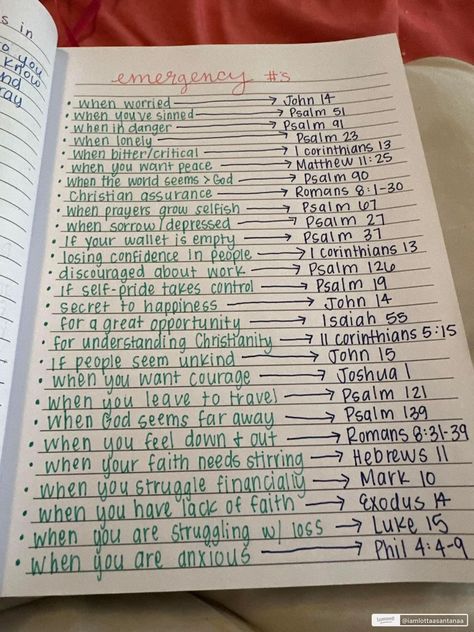 s in
to you
know
and
ray
emergency #s
• when worried → John 14
• when you've sinned → Psalm 51
• when in danger → Psalm 91
• when lonely → Psalm 23
• when bitter/critical → 1 corinthians 13
• when you want peace → Matthew 11:25
• when the world seems > God → Psalm 90
• Christian assurance → Romans 8:1-30
• when prayers grow selfish → Psalm 67
• when sorrow/depressed → Psalm 27
• If your wallet is empty → Psalm 37
• losing confidence in people → 1 corinthians 13
• discouraged about work → Psalm 126
• if self-pride takes control → Psalm 19
• secret to happiness → John 14
• for a great opportunity → Isaiah 55
• for understanding Christianity → 11 corinthians 5:15
• If people seem unkind → John 15
• when you want courage → Joshua 1
• when you leave to travel → Psalm 121
• when God seems far away → Psalm 139
• when you feel down + out → Romans 8:31-39
• when your faith needs stirring → Hebrews 11
• when you struggle financially → Mark 10
• when you have lack of faith → Exodus 14
• when you are struggling w/ loss → Luke 15
• when you are anxious → Phil 4:4-9
@iamlottaasantanaa